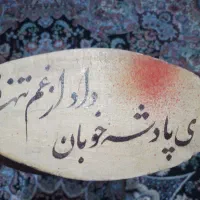 ی پادشه خوبان
داد از غم تنه